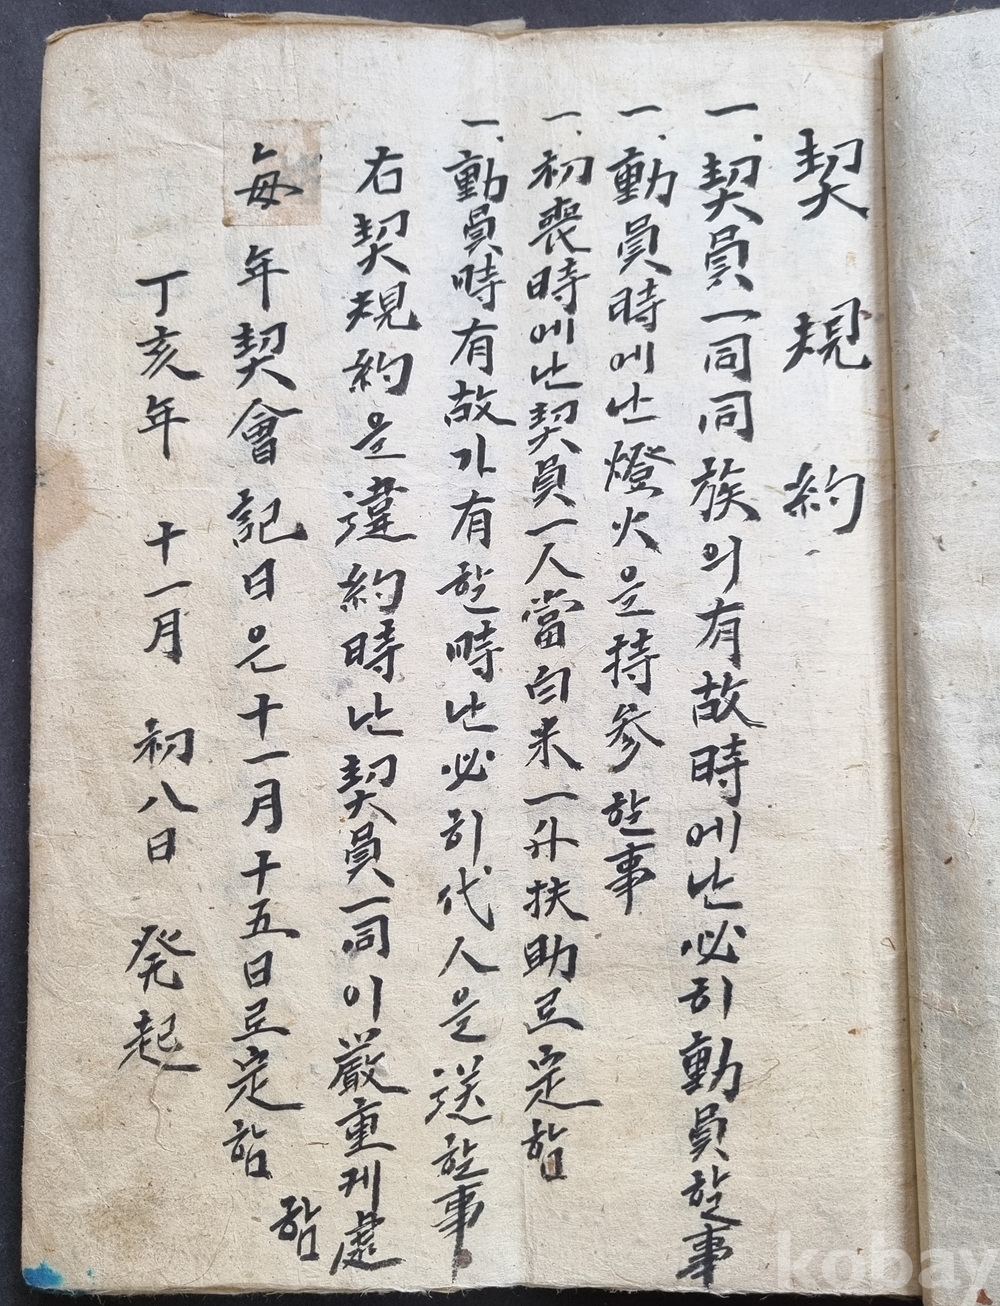 契規約
一. 契員一同同族의有故時에난必히動員할事
一. 動員時에난燈火을持參할事
一. 初喪時에난契員一人當白米一升扶助로定함
一. 動員時有故가有한時난必히代人을送할事
右契規約을違約時난契員一同이嚴重케處
함
每年契會記日은十一月十五日로定함
丁亥年 十一月 初八日 発起
kobay